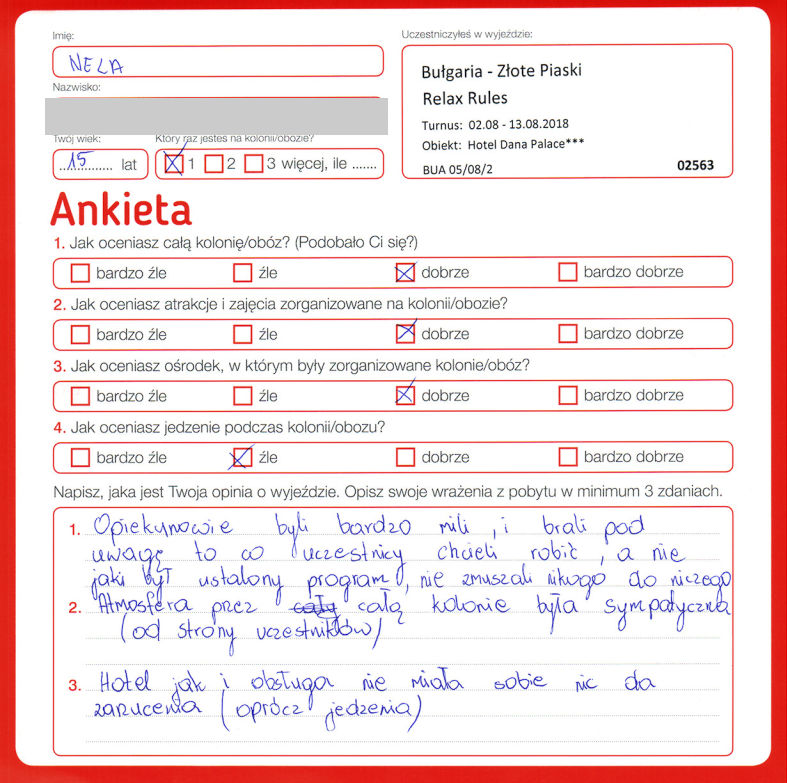 Imię:
NELA
Nazwisko:
Twój wiek:
15 lat
Który raz jesteś na kolonii/obozie?
1 2 3 więcej, ile .......
Uczestniczyłeś w wyjeździe:
Bułgaria - Złote Piaski
Relax Rules
Turnus: 02.08 - 13.08.2018
Obiekt: Hotel Dana Palace***
BUA 05/08/2 02563
Ankieta
1. Jak oceniasz całą kolonię/obóz? (Podobało Ci się?)
bardzo źle źle dobrze bardzo dobrze
2. Jak oceniasz atrakcje i zajęcia zorganizowane na kolonii/obozie?
bardzo źle źle dobrze bardzo dobrze
3. Jak oceniasz ośrodek, w którym były zorganizowane kolonie/obóz?
bardzo źle źle dobrze bardzo dobrze
4. Jak oceniasz jedzenie podczas kolonii/obozu?
bardzo źle źle dobrze bardzo dobrze
Napisz, jaka jest Twoja opinia o wyjeździe. Opisz swoje wrażenia z pobytu w minimum 3 zdaniach.
1. Opiekunowie byli bardzo mili , i brali pod
uwagę to co uczestnicy chcieli robić , a nie
jaki był ustalony program, nie zmuszali nikogo do niczego
2. Atmosfera przez całą kolonie była sympatyczna
(od strony uczestników)
3. Hotel jak i obsługa nie miała sobie nic da
zarzucenia (oprócz jedzenia)